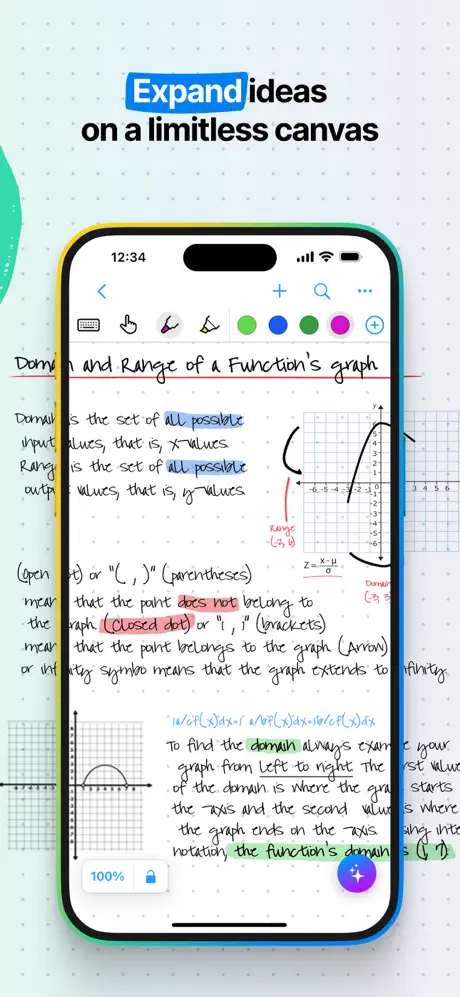 Expand ideas
on a limitless canvas
12:34
Domain and Range of a Function's graph
Domain is the set of all possible
input values, that is, x-values.
Range is the set of all possible
output values, that is, y-values.
y
6
5
4
3
2
1
-6 -5 -4 -3 -2 -1 0 3 4 5 6
-1
-2
-3
-4
-5
-6
Range
(-2, 6)
Z = x - μ
σ
Domain
(-3, 3
(open dot) or "( , )" (parentheses)
mean that the point does not belong to
the graph (closed dot) or "[ , ]" (brackets)
mean that the point belongs to the graph (Arrow)
or infinity symbo means that the graph extends to infinity.
To find the domain always exam your
graph from left to right. The first value
of the domain is where the graph starts
the -axis and the second value is where
the graph ends on the -axis using inte
notation, the function's domain is (1, 7)
100%